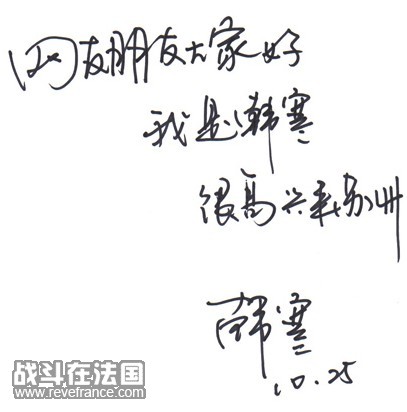 网友朋友大家好
我是韩寒
很高兴来苏州
韩寒
10.25
战斗在法国
www.revefrance.com